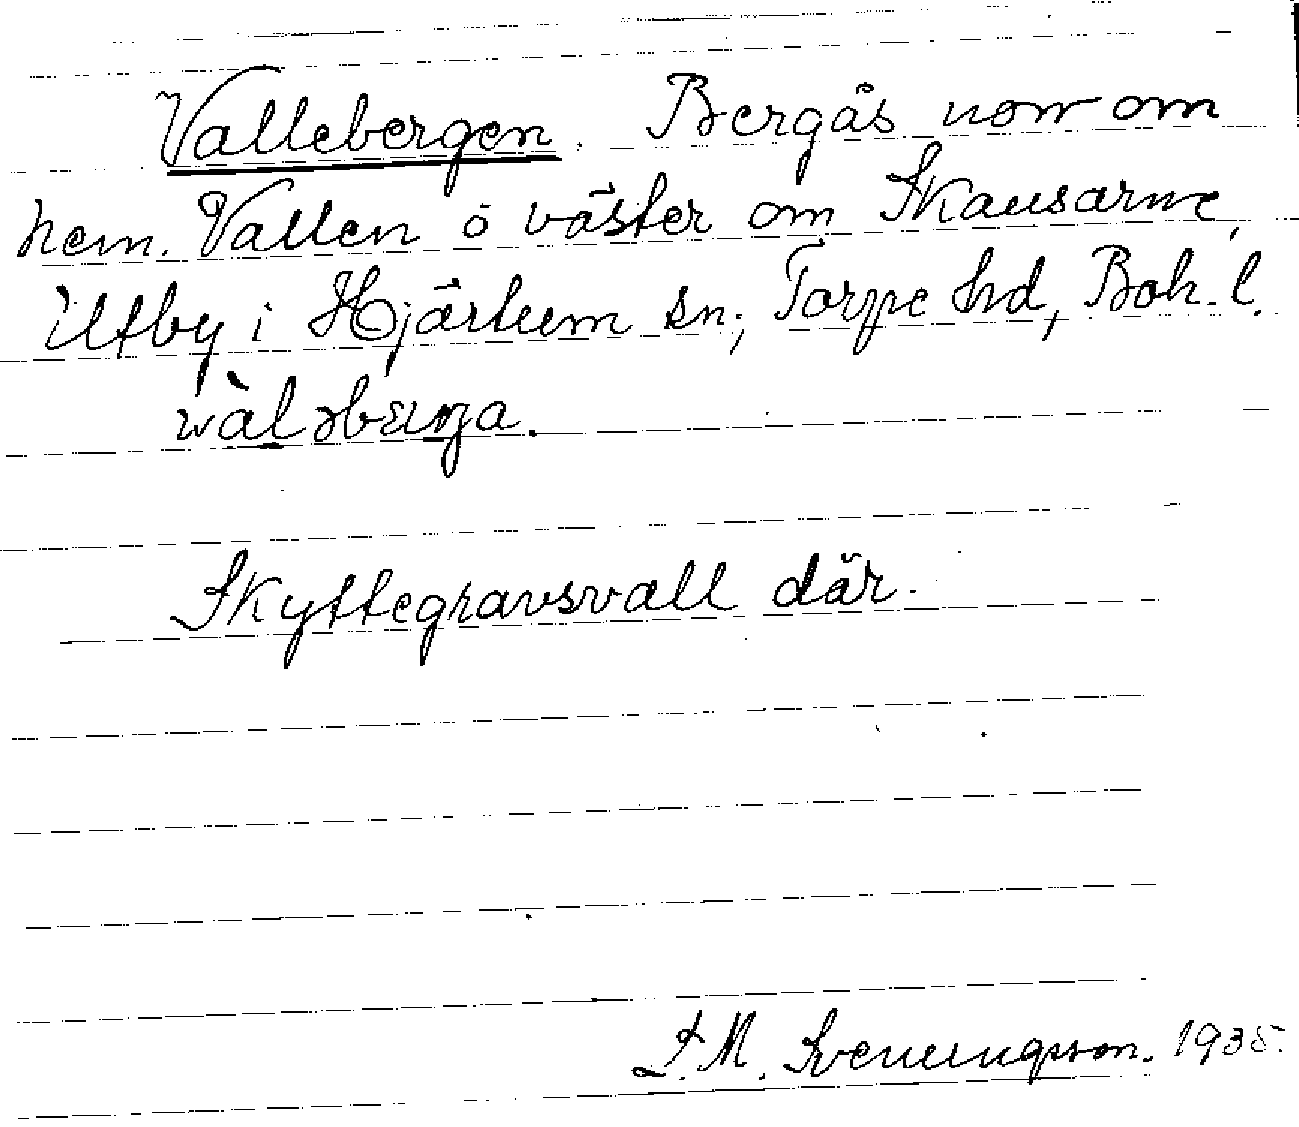 Vallebergen. Bergås norr om
hem. Vallen o väster om Skansarne,
Utby i Hjärtum sn, Torpe hd, Boh. l.
Skyttegravsvall där.
J. M. Sveningsson. 1935.